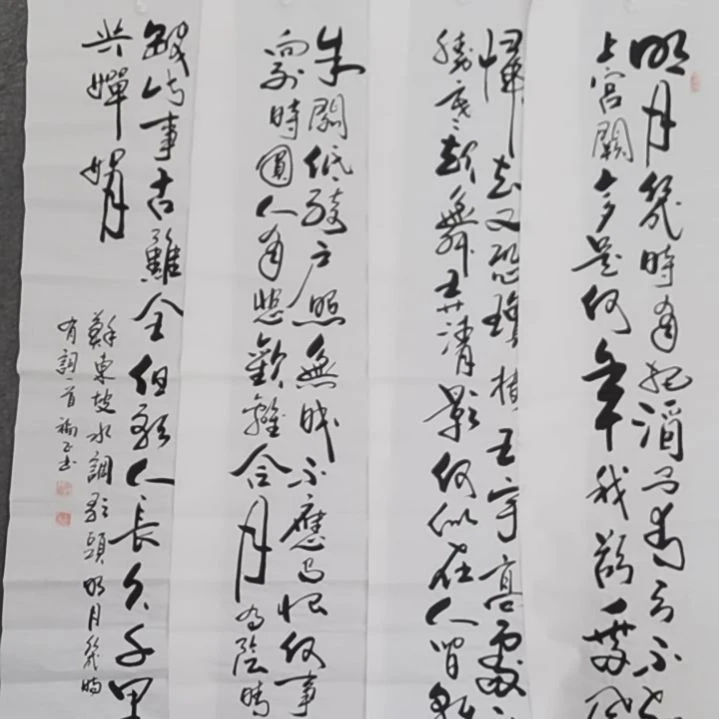 明月幾時有把酒問青天不知
上宮闕今夕是何年我欲乘風
歸去又恐瓊樓玉宇高處不
勝寒起舞弄清影何似在人間
朱閣低綺戶照無眠不應有恨何事
向別時圓人有悲歡離合月有陰晴
缺此事古難全但願人長久千里
共嬋娟
蘇東坡水調歌頭明月幾時
有詞一首書